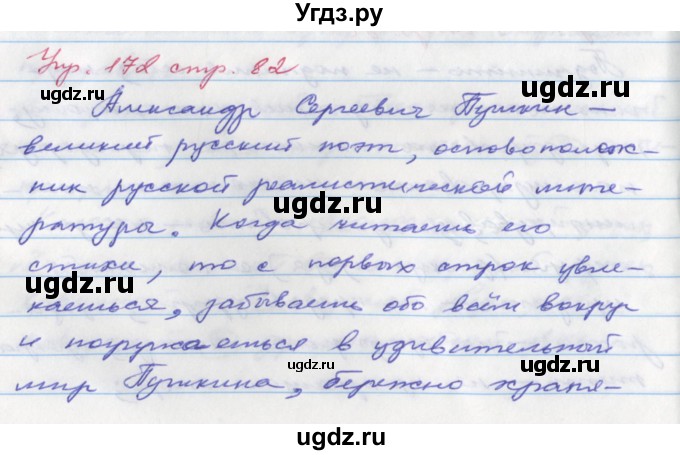 Угдз.ру
Упр. 172 стр. 82
ugdz.ru ugdz.ru
Александр Сергеевич Пушкин –
великий русский поэт, основополож-
ugdz.ru
ник русской реалистической лите-
ugdz.ru
ратуры. Когда читаешь его
стихи, то с первых строк увле-
ugdz.ru ugdz.ru
каешься, забываешь обо всём вокруг
и погружаешься в удивительный
ugdz.ru
мир Пушкина, бережно храня-
ugdz.ru